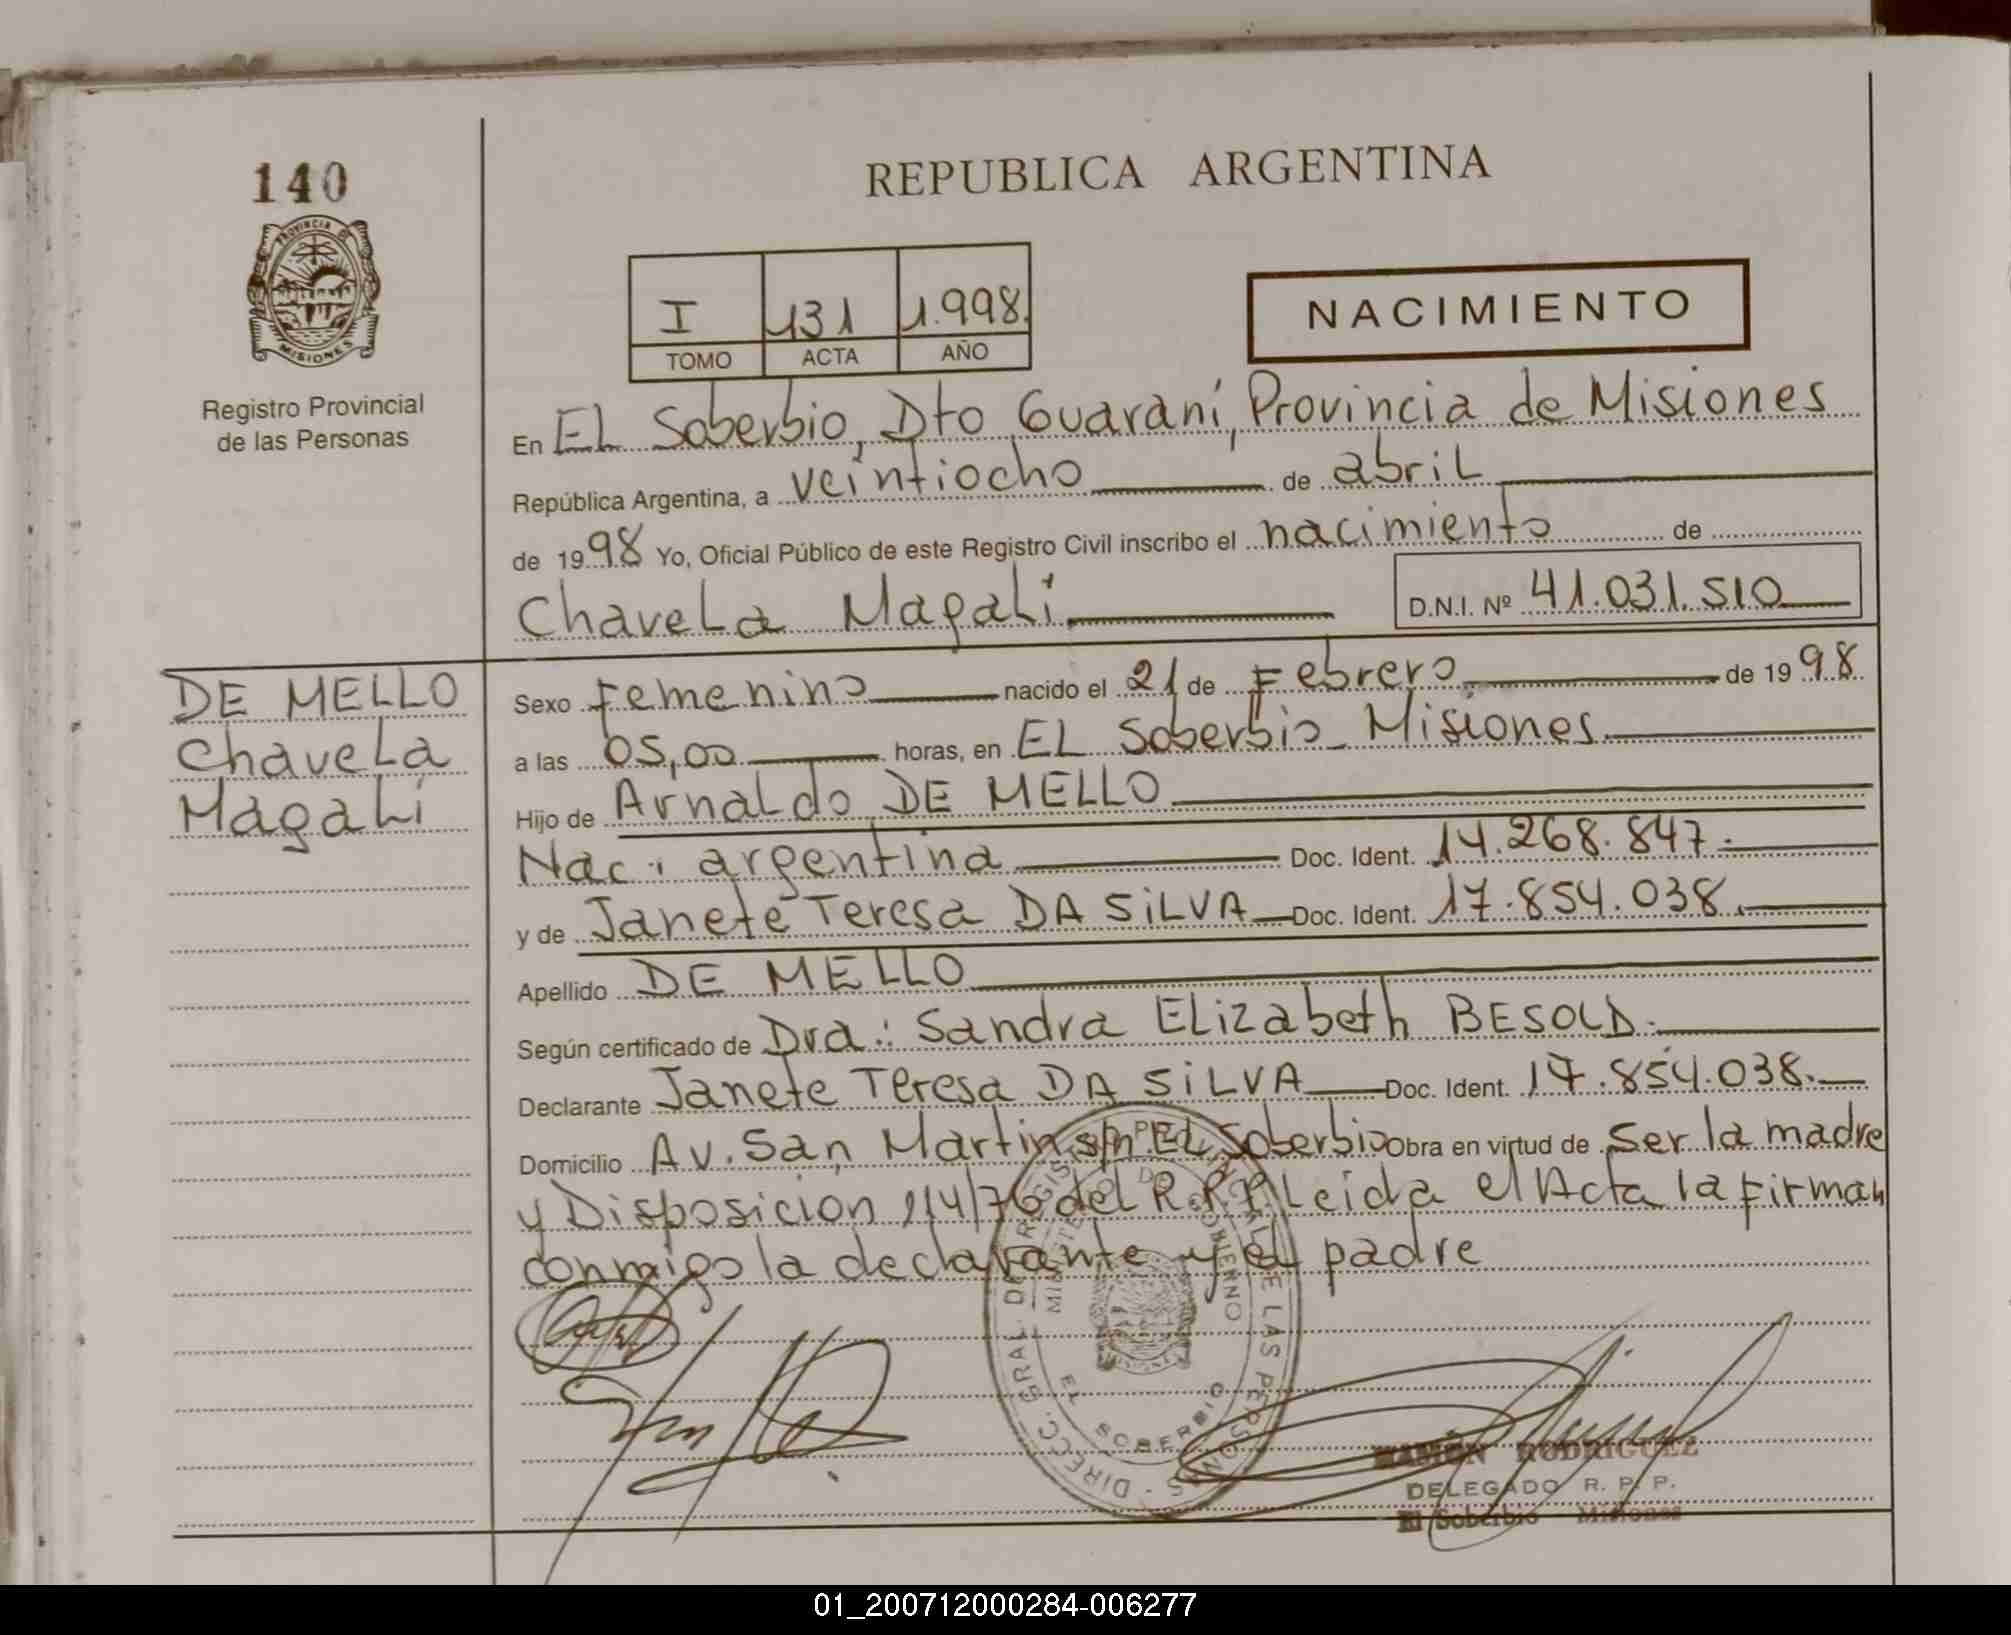 140
REPUBLICA ARGENTINA
PROVINCIA DE
MISIONES
Registro Provincial
de las Personas
I 131 1.998.
TOMO ACTA AÑO
NACIMIENTO
En EL Soberbio, Dto Guaraní, Provincia de Misiones
República Argentina, a veintiocho de abril
de 1998 Yo, Oficial Público de este Registro Civil inscribo el nacimiento de
Chavela Magali D.N.I. Nº 41.031.510
DE MELLO
Chavela
Magali
Sexo Femenino nacido el 21 de Febrero de 1998
a las 05,00 horas, en EL Soberbio - Misiones
Hijo de Arnaldo DE MELLO
Nac: argentina Doc. Ident. 14.268.847.
y de Janete Teresa DA SILVA Doc. Ident. 17.854.038.
Apellido DE MELLO
Según certificado de Dra: Sandra Elizabeth BESOLD.
Declarante Janete Teresa DA SILVA Doc. Ident. 17.854.038.
Domicilio Av. San Martin s/n EL Soberbio Obra en virtud de ser la madre
y Disposicion 114/76 del R.P.P. Leida el Acta la firman
conmigo la declarante y el padre
DIRECC. GRAL. DEL REGISTRO PROVINCIAL DE LAS PERSONAS
MINISTERIO DE GOBIERNO
EL SOBERBIO
MISIONES
RAMÓN RODRIGUEZ
DELEGADO R. P. P.
El Soberbio Misiones
01_200712000284-006277